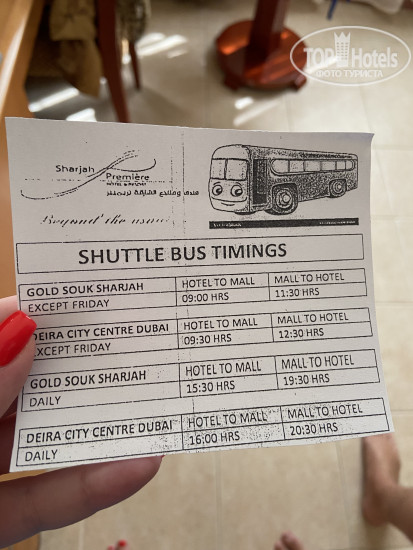 TOP Hotels
ФОТО ТУРИСТА
Sharjah
Première
HOTEL & RESORT
Beyond the usual
SHUTTLE BUS TIMINGS
GOLD SOUK SHARJAH HOTEL TO MALL MALL TO HOTEL
EXCEPT FRIDAY 09:00 HRS 11:30 HRS
DEIRA CITY CENTRE DUBAI HOTEL TO MALL MALL TO HOTEL
EXCEPT FRIDAY 09:30 HRS 12:30 HRS
GOLD SOUK SHARJAH HOTEL TO MALL MALL TO HOTEL
DAILY 15:30 HRS 19:30 HRS
DEIRA CITY CENTRE DUBAI HOTEL TO MALL MALL TO HOTEL
DAILY 16:00 HRS 20:30 HRS